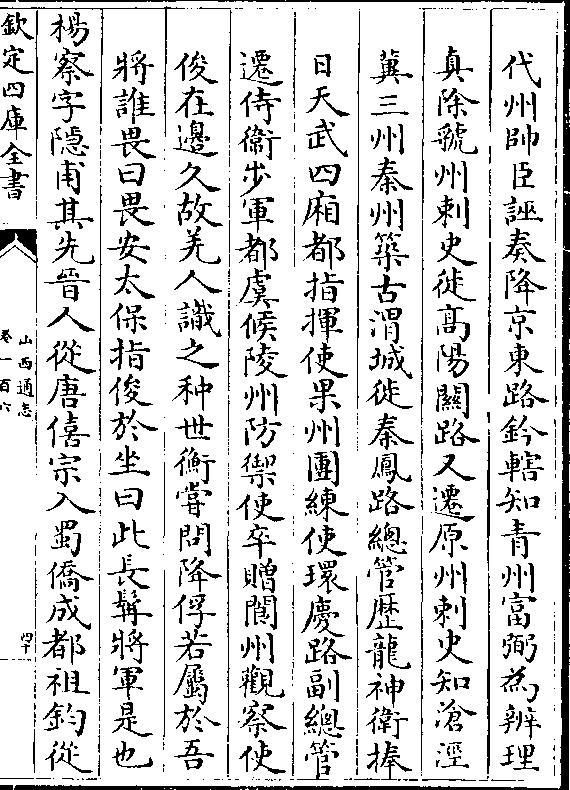 代州帥臣誣奏降京東路鈐轄知青州富弼為辨理
真除虢州刺史徙高陽關路又遷原州刺史知滄涇
冀三州秦州築古渭城徙秦鳳路總管歷龍神衛捧
日天武四廂都指揮使果州團練使環慶路副總管
遷侍衛步軍都虞候陵州防禦使卒贈閬州觀察使
俊在邊久故羌人識之种世衡嘗問降俘若屬於吾
將誰畏曰畏安太保指俊於坐曰此長髯將軍是也
楊察字隱甫其先晉人從唐僖宗入蜀僑成都祖鈞從
欽定四庫全書
山西通志
卷一百六
四十